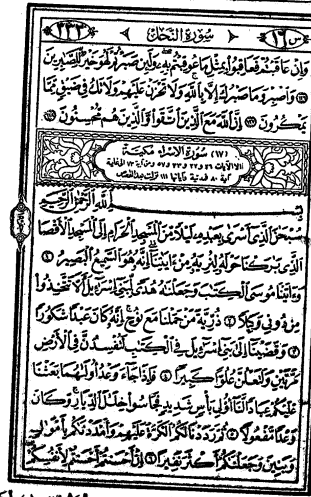 س ١٦ سورة النحل
وَإِنْ عَاقَبْتُمْ فَعَاقِبُوا بِمِثْلِ مَا عُوقِبْتُمْ بِهِ وَلَئِنْ صَبَرْتُمْ لَهُوَ خَيْرٌ لِلصَّٰبِرِينَ
١٢٦ وَاصْبِرْ وَمَا صَبْرُكَ إِلَّا بِاللَّهِ وَلَا تَحْزَنْ عَلَيْهِمْ وَلَا تَكُ فِي ضَيْقٍ مِمَّا
يَمْكُرُونَ ١٢٧ إِنَّ اللَّهَ مَعَ الَّذِينَ اتَّقَوْا وَالَّذِينَ هُمْ مُحْسِنُونَ ١٢٨
(١٧) سورة الإسراء مكية
إلا الآيات ٢٦ و ٣٢ و ٣٣ و ٥٧ ومن آية ٧٣ إلى غاية
آية ٨٠ فمدنية وآياتها ١١١ نزلت بعد القصص
بِسْمِ اللَّهِ الرَّحْمَٰنِ الرَّحِيمِ
سُبْحَٰنَ الَّذِي أَسْرَىٰ بِعَبْدِهِ لَيْلًا مِنَ الْمَسْجِدِ الْحَرَامِ إِلَى الْمَسْجِدِ الْأَقْصَا
الَّذِي بَٰرَكْنَا حَوْلَهُ لِنُرِيَهُ مِنْ ءَايَٰتِنَا إِنَّهُ هُوَ السَّمِيعُ الْبَصِيرُ ١
وَءَاتَيْنَا مُوسَى الْكِتَٰبَ وَجَعَلْنَٰهُ هُدًى لِبَنِي إِسْرَٰءِيلَ أَلَّا تَتَّخِذُوا
مِنْ دُونِي وَكِيلًا ٢ ذُرِّيَّةَ مَنْ حَمَلْنَا مَعَ نُوحٍ إِنَّهُ كَانَ عَبْدًا شَكُورًا
٣ وَقَضَيْنَا إِلَىٰ بَنِي إِسْرَٰءِيلَ فِي الْكِتَٰبِ لَتُفْسِدُنَّ فِي الْأَرْضِ
مَرَّتَيْنِ وَلَتَعْلُنَّ عُلُوًّا كَبِيرًا ٤ فَإِذَا جَاءَ وَعْدُ أُولَىٰهُمَا بَعَثْنَا
عَلَيْكُمْ عِبَادًا لَنَا أُولِي بَأْسٍ شَدِيدٍ فَجَاسُوا خِلَٰلَ الدِّيَارِ وَكَانَ
وَعْدًا مَفْعُولًا ٥ ثُمَّ رَدَدْنَا لَكُمُ الْكَرَّةَ عَلَيْهِمْ وَأَمْدَدْنَٰكُمْ بِأَمْوَٰلٍ
وَبَنِينَ وَجَعَلْنَٰكُمْ أَكْثَرَ نَفِيرًا ٦ إِنْ أَحْسَنْتُمْ أَحْسَنْتُمْ لِأَنْفُسِكُمْ